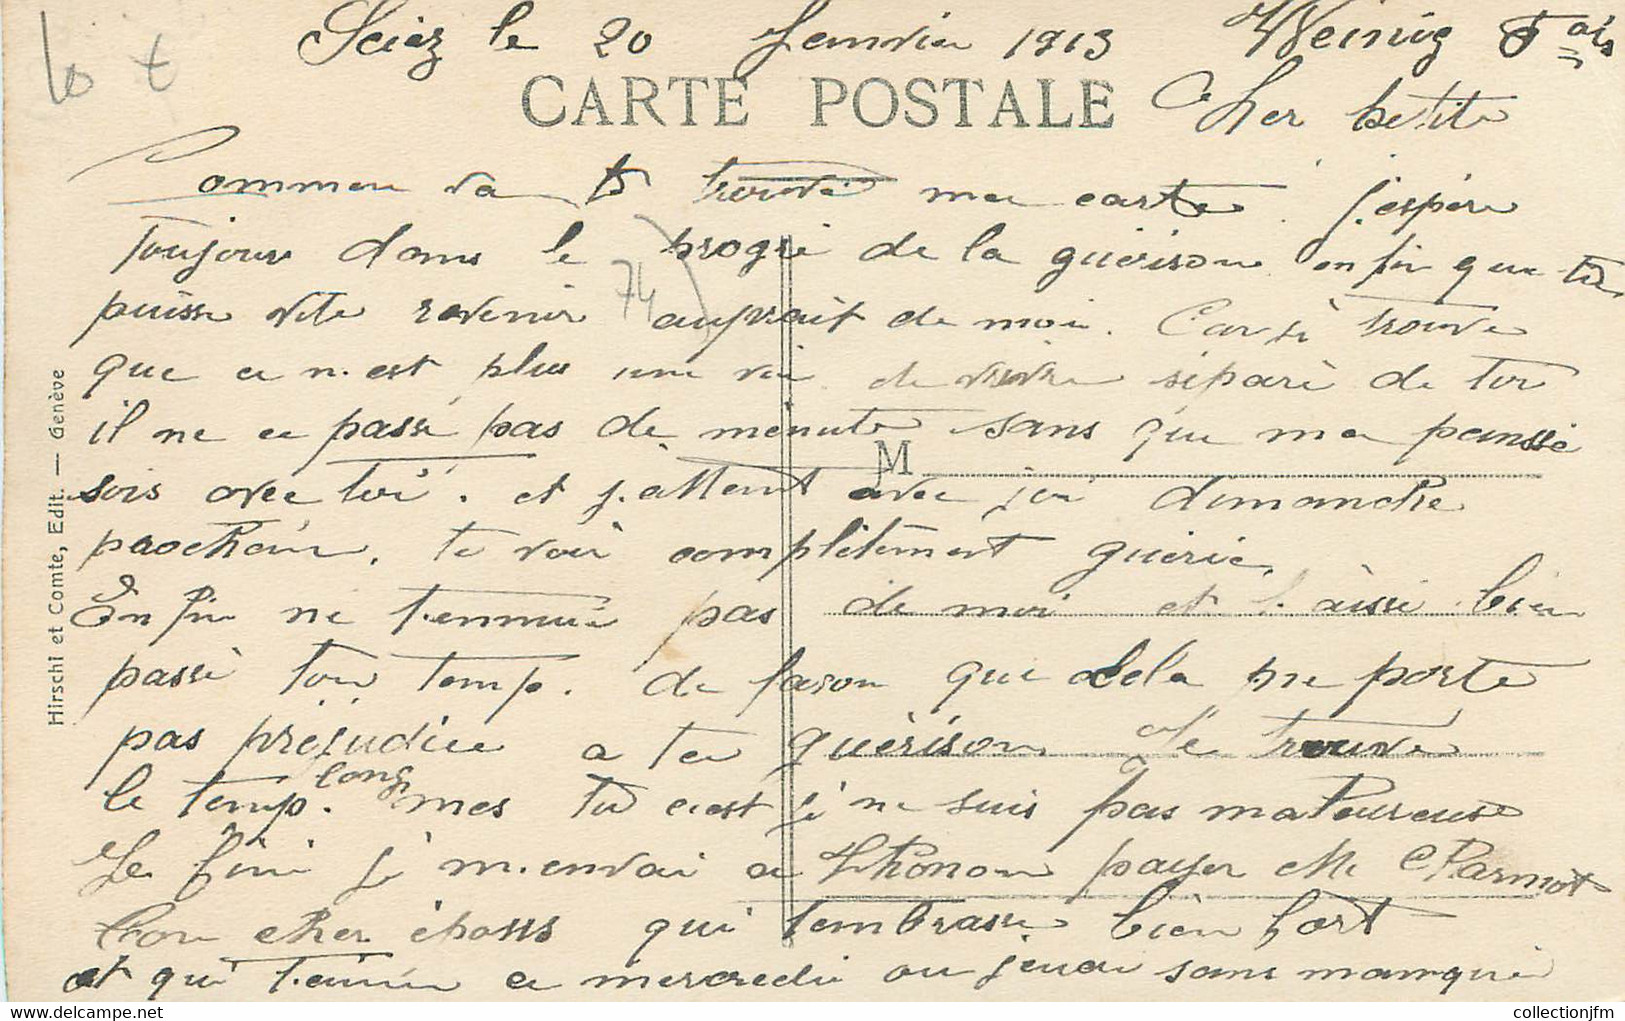 lot
Sciez le 20 Jenvrier 1913
CARTE POSTALE
Cher petite
Commen va tu trouvé ma carte. j.espère
Toujour dans le progré de la guérison enfin que tu
74
puisse vite revenir auprait de moi. Car je trouve
que ce n.est plus une vie de vivre séparé de toi
il ne ce passé pas de menute sans que ma penssé
M
sois avec toi. et j.attent avec joi dimanche
prochain. te voir complétement guérie.
Enfin ne t.ennuie pas de moi et l.aissé bien
passé tou temp. de facon que cela ne porte
pas préjudice a ta guérison Je trouve
le temp. long mes tu c.est je ne suis pas matheureuse
Je fini je m.en vai a Thonon payer Me Charmot
Ton cher époss qui t.embrasse bien fort
et qui t.aime a mercredi ou jeudi sans manqué
Hirschi et Comte, Edit. — Genève
collectionjfm